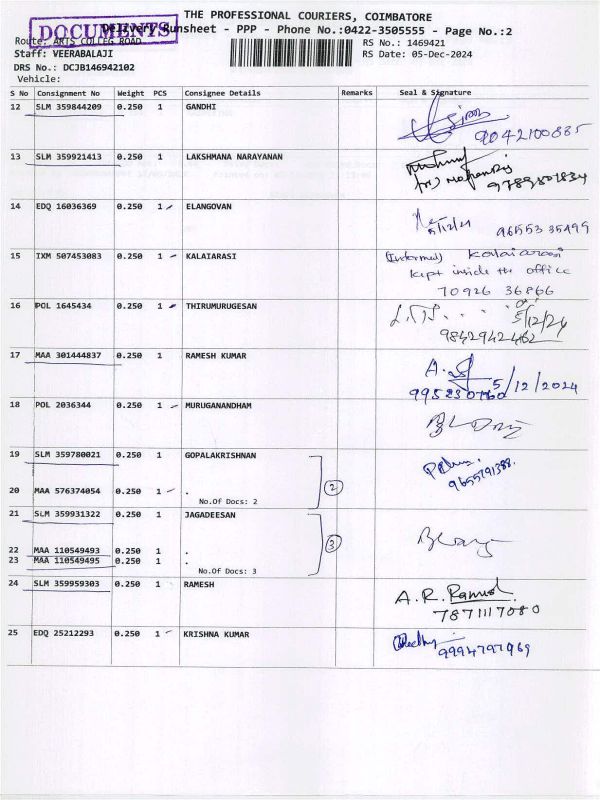 THE PROFESSIONAL COURIERS, COIMBATORE
DOCUMENTS
Delivery Runsheet - PPP - Phone No.:0422-3505555 - Page No.:2
Route: ARTS COLLEG ROAD
RS No.: 1469421
Staff: VEERABALAJI
RS Date: 05-Dec-2024
DRS No.: DCJB146942102
Vehicle:
S No Consignment No Weight PCS Consignee Details Remarks Seal & Signature
12 SLM 359844209 0.250 1 GANDHI
9042100885
13 SLM 359921413 0.250 1 LAKSHMANA NARAYANAN
9789801834
14 EDQ 16036369 0.250 1 ELANGOVAN
5/12/24
9655335499
15 IXM 507453083 0.250 1 KALAIARASI
(Informed) Kalaiarasi
kept inside the office
70926 36866
16 POL 1645434 0.250 1 THIRUMURUGESAN
5/12/24
9842942462
17 MAA 301444837 0.250 1 RAMESH KUMAR
5/12/2024
18 POL 2036344 0.250 1 MURUGANANDHAM
19 SLM 359780021 0.250 1 GOPALAKRISHNAN
9655791388
20 MAA 576374054 0.250 1 .
No.Of Docs: 2
2
21 SLM 359931322 0.250 1 JAGADEESAN
22 MAA 110549493 0.250 1 .
23 MAA 110549495 0.250 1 .
No.Of Docs: 3
3
24 SLM 359959303 0.250 1 RAMESH
A.R. Ramesh
7871117080
25 EDQ 25212293 0.250 1 KRISHNA KUMAR
9994797969